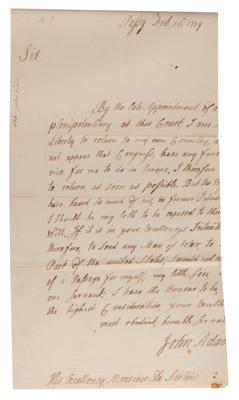 Passy Feb. 16. 1779
Sir
By the late Appointment of a
plenipotentiary at this Court, I am
Liberty to return to my own Country, as
not appear that Congress, have any fur
vice for me to do in Europe. I therefore
to return, as soon as possible. But the En
have heard so much of me, in former Times
I should be very loth to be exposed to their
Will. If it is in your Excellencys Intenti
therefore, to send any Man of War, to
Part of the united States, I would ask
of a Passage for myself, my little Son
one servant. I have the Honour to be,
the highest Consideration, your Excelle
most obedient, humble servan
John Adam
His Excellency Monsieur De Sartine,